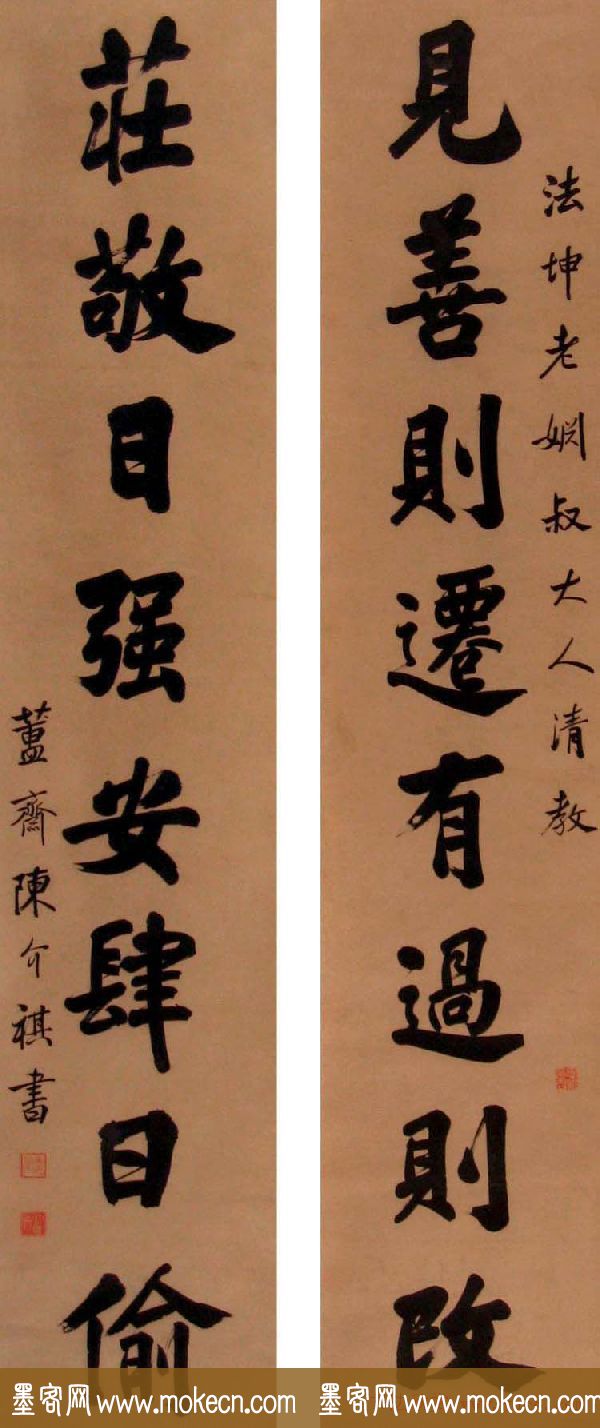 法坤老婣叔大人清教
見善則遷有過則改
莊敬日强安肆日偷
簠齋陳介祺書
墨客网 www.mokecn.com
墨客网 www.mokecn.com